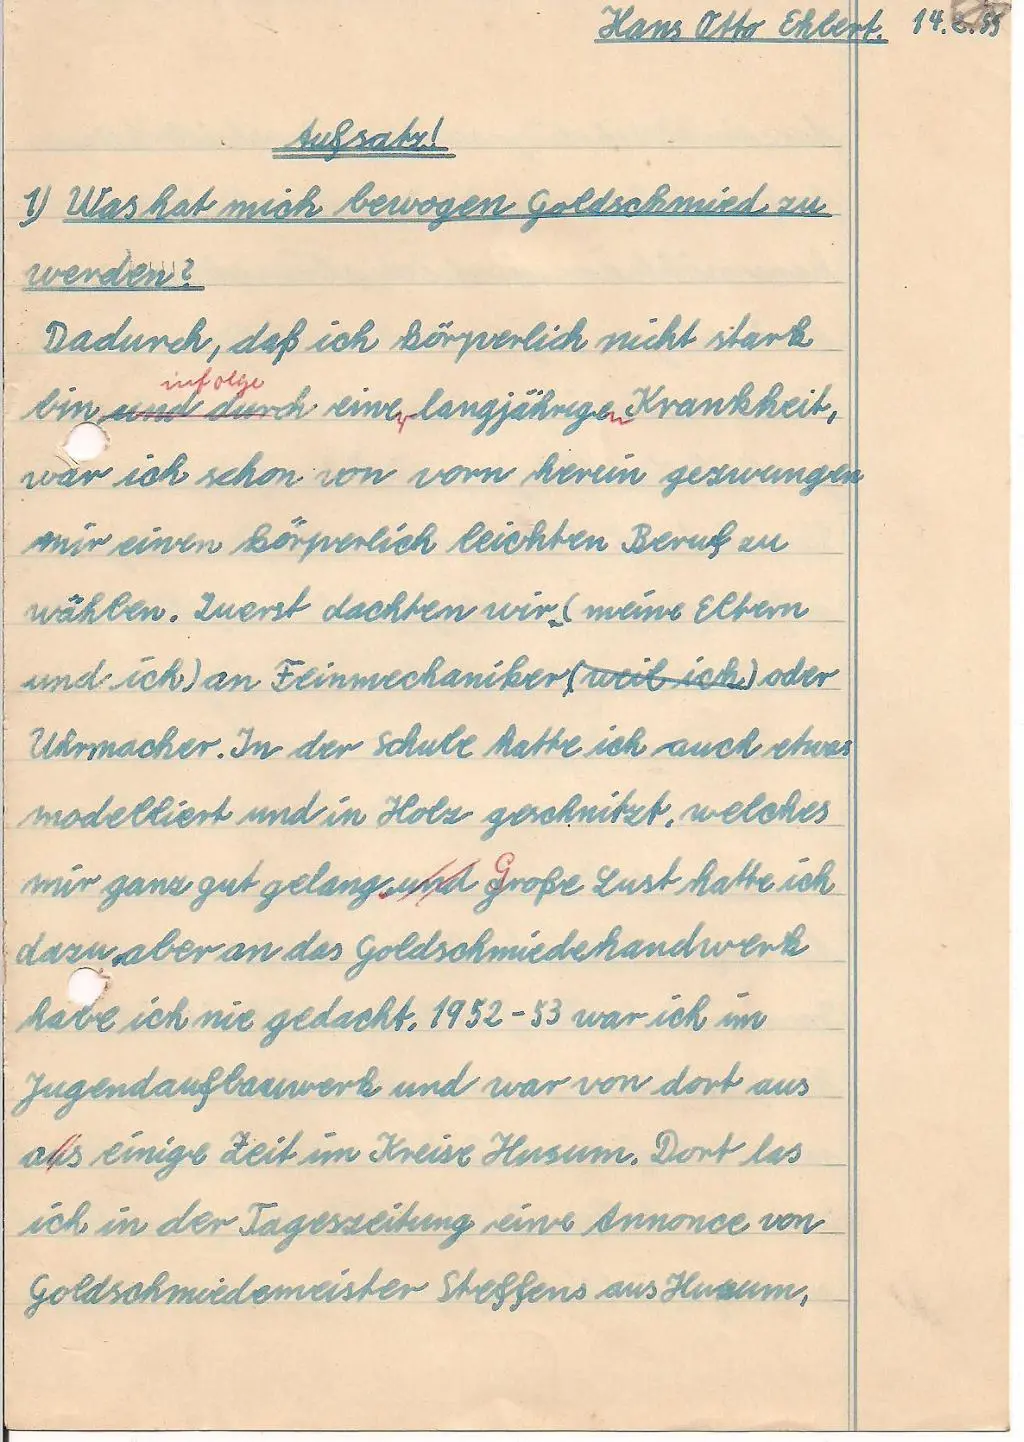 Hans Otto Ehlert. 14.2.55
Aufsatz!
1) Was hat mich bewogen Goldschmied zu
werden?
Dadurch, daß ich körperlich nicht stark
infolge
bin und durch einer langjährigen Krankheit,
war ich schon von vorn herein gezwungen
mir einen körperlich leichten Beruf zu
wählen. Zuerst dachten wir (meine Eltern
und ich) an Feinmechaniker (weil ich) oder
Uhrmacher. In der Schule hatte ich auch etwas
modelliert und in Holz geschnitzt, welches
mir ganz gut gelang. und Große Lust hatte ich
dazu, aber an das Goldschmiedehandwerk
habe ich nie gedacht. 1952-53 war ich im
Jugendaufbauwerk und war von dort aus
als einige Zeit im Kreise Husum. Dort las
ich in der Tageszeitung eine Annonce von
Goldschmiedemeister Steffens aus Husum,